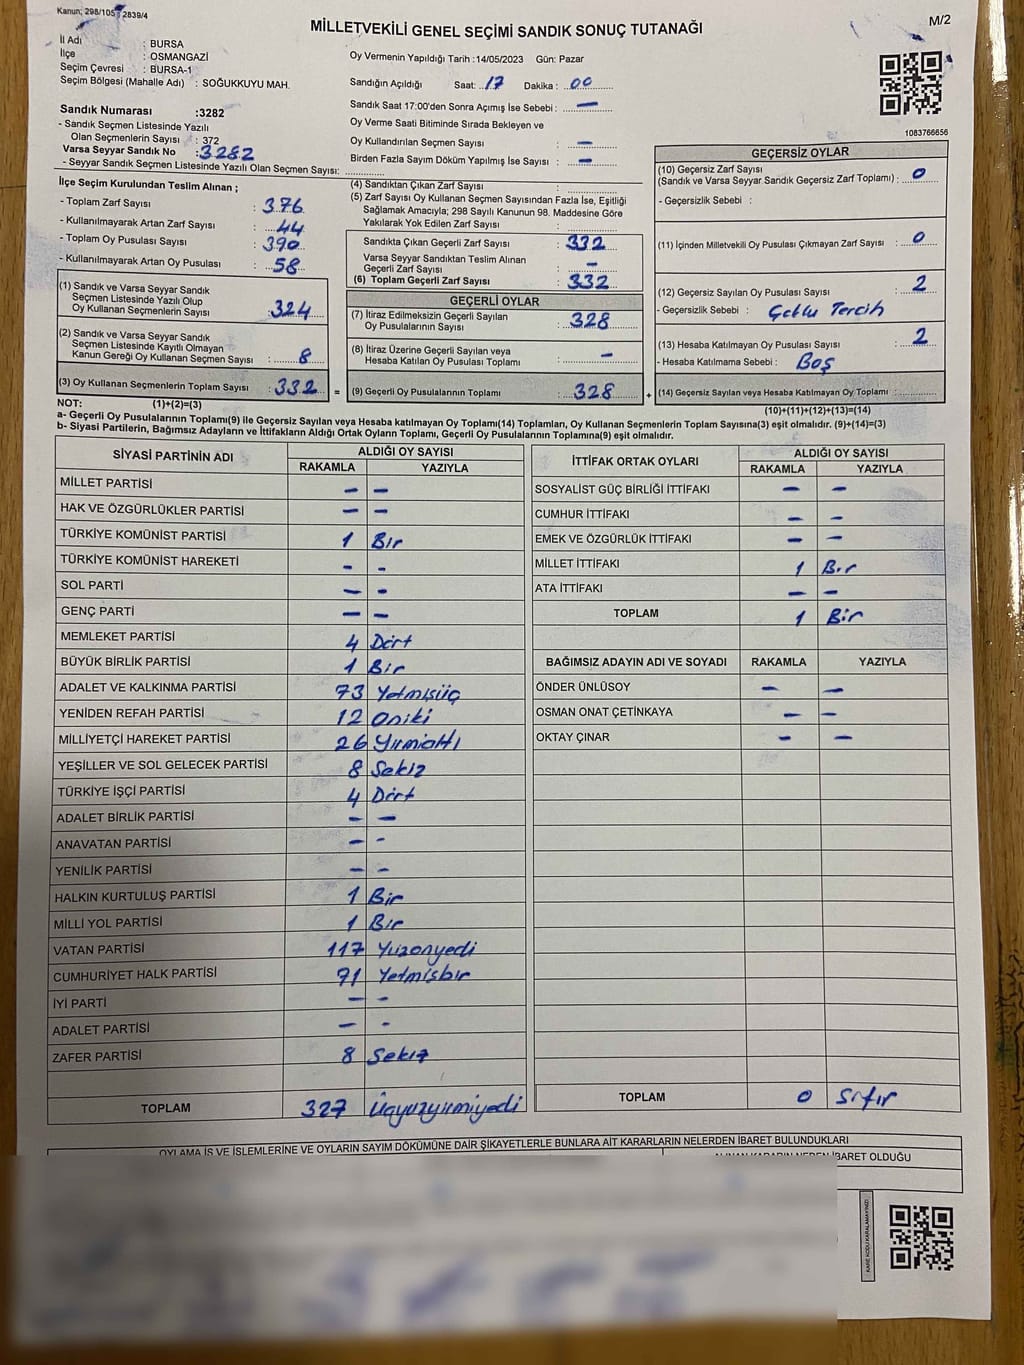 Kanun; 298/105 2839/4
M/2
MİLLETVEKİLİ GENEL SEÇİMİ SANDIK SONUÇ TUTANAĞI
İl Adı : BURSA
İlçe : OSMANGAZİ
Seçim Çevresi : BURSA-1
Seçim Bölgesi (Mahalle Adı) : SOĞUKKUYU MAH.
Oy Vermenin Yapıldığı Tarih :14/05/2023 Gün: Pazar
Sandığın Açıldığı Saat: 17 Dakika : 00
Sandık Saat 17:00'den Sonra Açımış İse Sebebi : —
Oy Verme Saati Bitiminde Sırada Bekleyen ve
Oy Kullandırılan Seçmen Sayısı : —
Birden Fazla Sayım Döküm Yapılmış İse Sayısı : —
1083766656
Sandık Numarası :3282
- Sandık Seçmen Listesinde Yazılı
Olan Seçmenlerin Sayısı : 372
Varsa Seyyar Sandık No : 3282
- Seyyar Sandık Seçmen Listesinde Yazılı Olan Seçmen Sayısı:
İlçe Seçim Kurulundan Teslim Alınan ;
- Toplam Zarf Sayısı : 376
- Kullanılmayarak Artan Zarf Sayısı : 44
- Toplam Oy Pusulası Sayısı : 390
- Kullanılmayarak Artan Oy Pusulası : 58
(1) Sandık ve Varsa Seyyar Sandık
Seçmen Listesinde Yazılı Olup
Oy Kullanan Seçmenlerin Sayısı : 324
(2) Sandık ve Varsa Seyyar Sandık
Seçmen Listesinde Kayıtlı Olmayan
Kanun Gereği Oy Kullanan Seçmen Sayısı : 8
(3) Oy Kullanan Seçmenlerin Toplam Sayısı : 332 =
(4) Sandıktan Çıkan Zarf Sayısı :
(5) Zarf Sayısı Oy Kullanan Seçmen Sayısından Fazla İse, Eşitliği
Sağlamak Amacıyla; 298 Sayılı Kanunun 98. Maddesine Göre
Yakılarak Yok Edilen Zarf Sayısı :
Sandıkta Çıkan Geçerli Zarf Sayısı : 332
Varsa Seyyar Sandıktan Teslim Alınan
Geçerli Zarf Sayısı : —
(6) Toplam Geçerli Zarf Sayısı : 332
GEÇERLİ OYLAR
(7) İtiraz Edilmeksizin Geçerli Sayılan
Oy Pusulalarının Sayısı : 328
(8) İtiraz Üzerine Geçerli Sayılan veya
Hesaba Katılan Oy Pusulası Toplamı : —
(9) Geçerli Oy Pusulalarının Toplamı : 328 +
GEÇERSİZ OYLAR
(10) Geçersiz Zarf Sayısı
(Sandık ve Varsa Seyyar Sandık Geçersiz Zarf Toplamı) : 0
- Geçersizlik Sebebi :
(11) İçinden Milletvekili Oy Pusulası Çıkmayan Zarf Sayısı : 0
(12) Geçersiz Sayılan Oy Pusulası Sayısı : 2
- Geçersizlik Sebebi : Çoklu Tercih
(13) Hesaba Katılmayan Oy Pusulası Sayısı : 2
- Hesaba Katılmama Sebebi : Boş
(14) Geçersiz Sayılan veya Hesaba Katılmayan Oy Toplamı :
NOT: (1)+(2)=(3)
(10)+(11)+(12)+(13)=(14)
a- Geçerli Oy Pusulalarının Toplamı(9) ile Geçersiz Sayılan veya Hesaba katılmayan Oy Toplamı(14) Toplamları, Oy Kullanan Seçmenlerin Toplam Sayısına(3) eşit olmalıdır. (9)+(14)=(3)
b- Siyasi Partilerin, Bağımsız Adayların ve İttifakların Aldığı Ortak Oyların Toplamı, Geçerli Oy Pusulalarının Toplamına(9) eşit olmalıdır.
SİYASİ PARTİNİN ADI ALDIĞI OY SAYISI
RAKAMLA YAZIYLA
MİLLET PARTİSİ — —
HAK VE ÖZGÜRLÜKLER PARTİSİ — —
TÜRKİYE KOMÜNİST PARTİSİ 1 Bir
TÜRKİYE KOMÜNİST HAREKETİ - -
SOL PARTİ — -
GENÇ PARTİ — —
MEMLEKET PARTİSİ 4 Dört
BÜYÜK BİRLİK PARTİSİ 1 Bir
ADALET VE KALKINMA PARTİSİ 73 Yetmişüç
YENİDEN REFAH PARTİSİ 12 Oniki
MİLLİYETÇİ HAREKET PARTİSİ 26 Yirmialtı
YEŞİLLER VE SOL GELECEK PARTİSİ 8 Sekiz
TÜRKİYE İŞÇİ PARTİSİ 4 Dört
ADALET BİRLİK PARTİSİ — —
ANAVATAN PARTİSİ — -
YENİLİK PARTİSİ — -
HALKIN KURTULUŞ PARTİSİ 1 Bir
MİLLİ YOL PARTİSİ 1 Bir
VATAN PARTİSİ 117 Yuzonyedi
CUMHURİYET HALK PARTİSİ 71 Yetmişbir
İYİ PARTİ — -
ADALET PARTİSİ — -
ZAFER PARTİSİ 8 Sekiz
TOPLAM 327 Üçyuzyirmiyedi
İTTİFAK ORTAK OYLARI ALDIĞI OY SAYISI
RAKAMLA YAZIYLA
SOSYALİST GÜÇ BİRLİĞİ İTTİFAKI — —
CUMHUR İTTİFAKI — —
EMEK VE ÖZGÜRLÜK İTTİFAKI — —
MİLLET İTTİFAKI 1 Bir
ATA İTTİFAKI — —
TOPLAM 1 Bir
BAĞIMSIZ ADAYIN ADI VE SOYADI RAKAMLA YAZIYLA
ÖNDER ÜNLÜSOY — —
OSMAN ONAT ÇETİNKAYA — —
OKTAY ÇINAR — —
TOPLAM 0 Sıfır
OYLAMA İŞ VE İŞLEMLERİNE VE OYLARIN SAYIM DÖKÜMÜNE DAİR ŞİKAYETLERLE BUNLARA AİT KARARLARIN NELERDEN İBARET BULUNDUKLARI
ALINAN KARARIN NEDEN İBARET OLDUĞU
KARE KODU KARALAMAYINIZ!